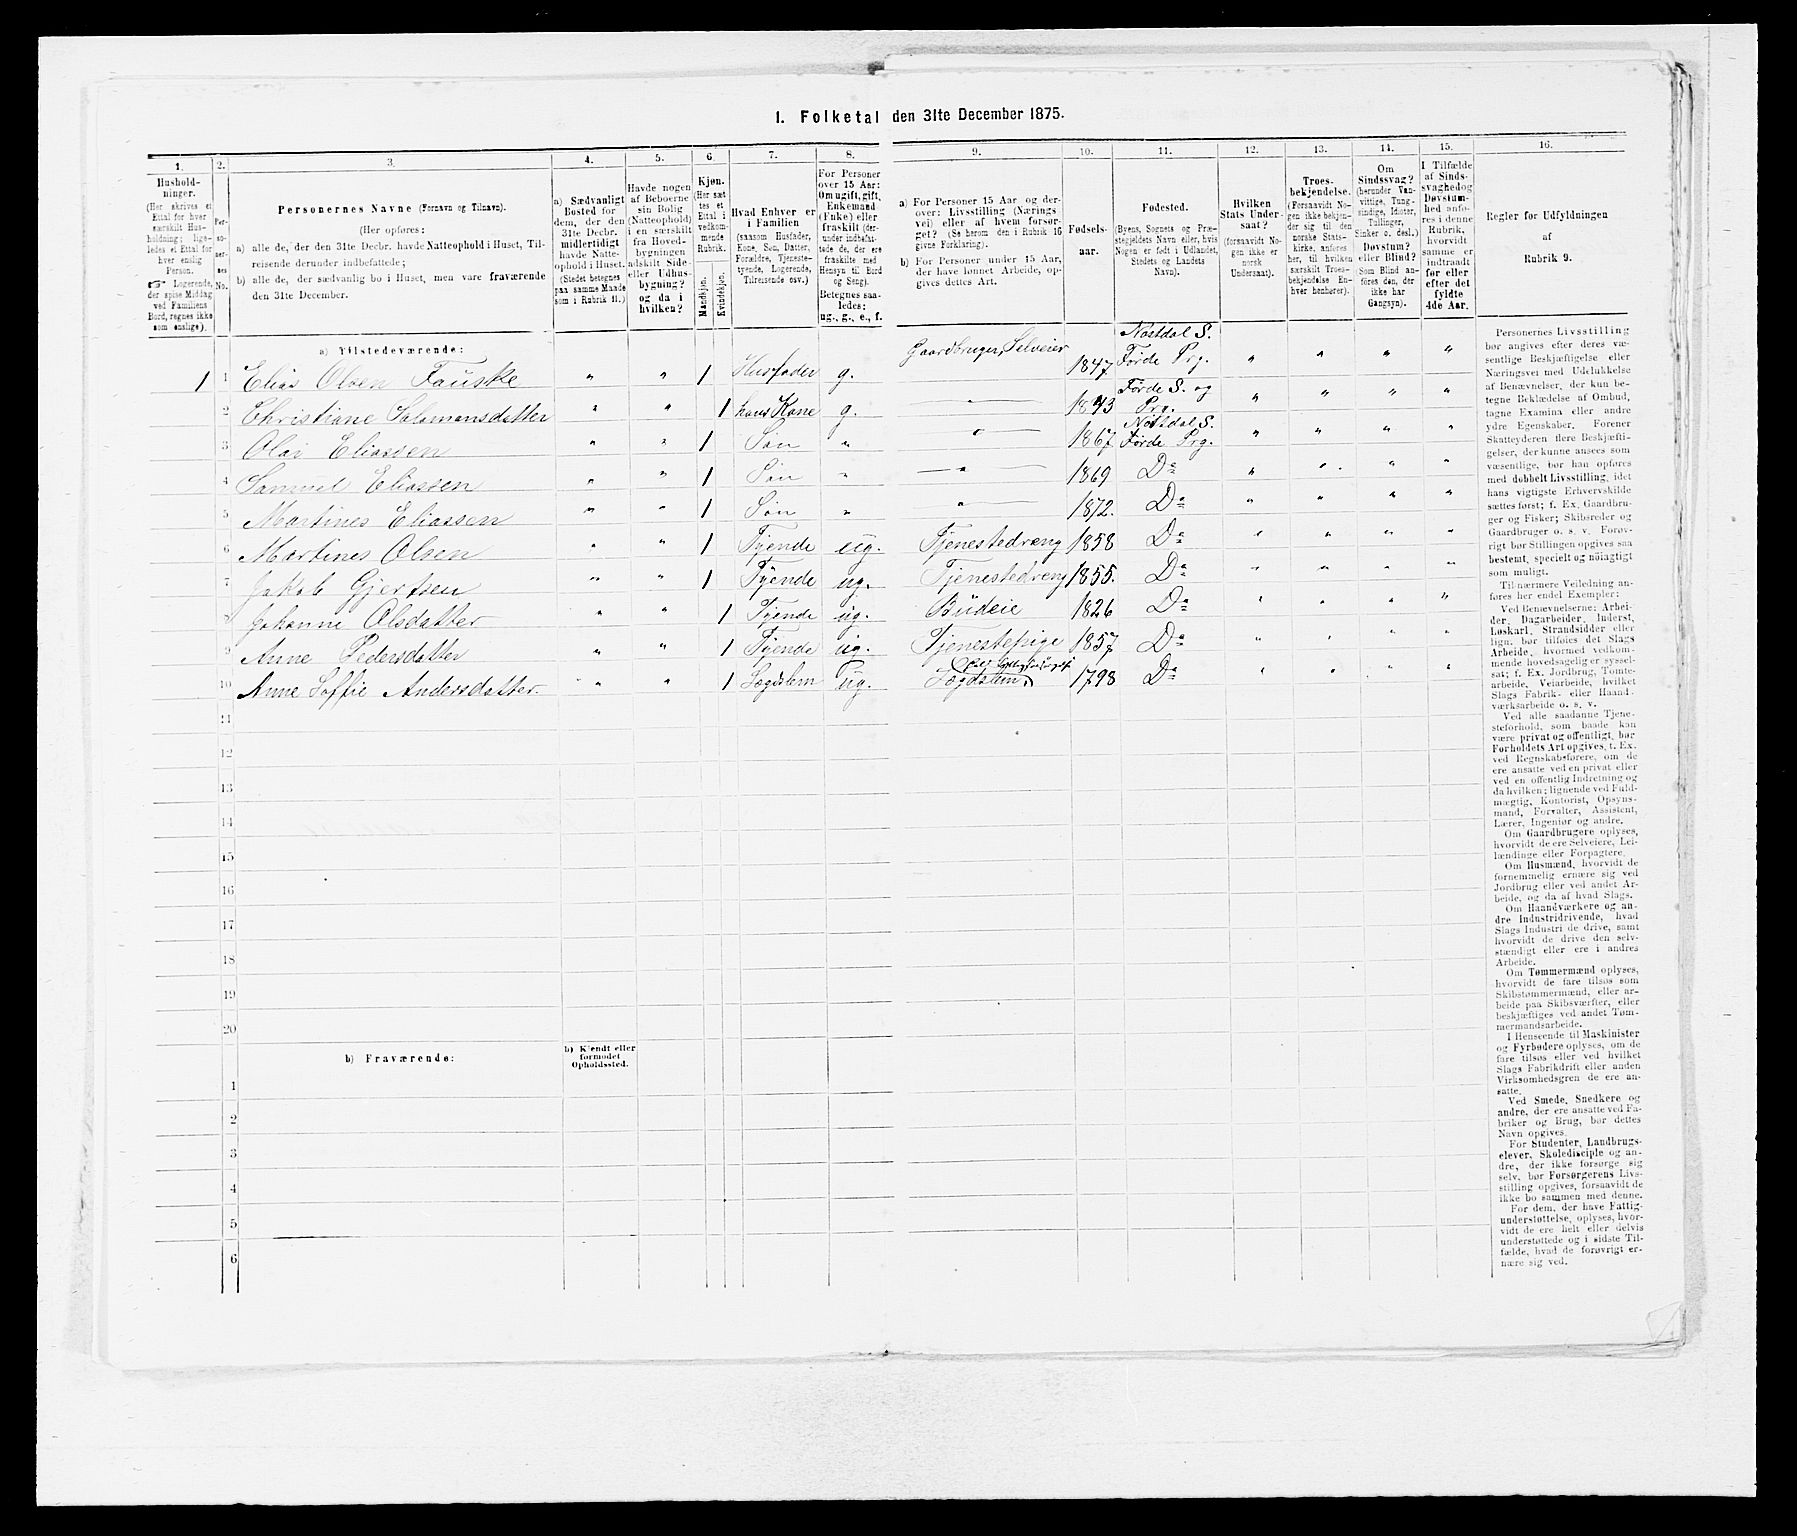 I. Folketal den 31te December 1875.
1. 2. 3. 4. 5. 6. 7. 8. 9. 10. 11. 12. 13. 14. 15. 16.
Husholdninger.
(Her skrives et Ettal for hver særskilt Husholdning; ligeledes et Ettal for hver enslig Person.
☞ Logerende, der spise Middag ved Familiens Bord, regnes ikke som enslige).
Personernes No.
Personernes Navne (Fornavn og Tilnavn).
(Her opføres:
a) alle de, der den 31te Decbr. havde Natteophold i Huset, Tilreisende derunder indbefattede;
b) alle de, der sædvanlig bo i Huset, men vare fraværende den 31te December.
a) Sædvanligt Bosted for dem, der den 31te Decbr. midlertidigt havde Natteophold i Huset. (Stedet betegnes paa samme Maade som i Rubrik 11.)
Havde nogen af Beboerne sin Bolig (Natteophold) i en særskilt fra Hovedbygningen adskilt Side- eller Udhusbygning? og da i hvilken?
Kjøn.
(Her sættes et Ettal i vedkommende Rubrik.
Mandkjøn. Kvindekjøn.
Hvad Enhver er i Familien
(saasom Husfader, Kone, Søn, Datter, Forældre, Tjenestetyende, Logerende, Tilreisende osv.)
For Personer over 15 Aar: Om ugift, gift, Enkemand (Enke) eller fraskilt (derunder indbefattede de, der ere fraskilte med Hensyn til Bord og Seng).
Betegnes saaledes: ug., g., e., f.
a) For Personer 15 Aar og derover: Livsstilling (Næringsvei) eller af hvem forsørget? (Se herom den i Rubrik 16 givne Forklaring).
b) For Personer under 15 Aar, der have lønnet Arbeide, opgives dettes Art.
Fødselsaar.
Fødested.
(Byens, Sognets og Præstegjeldets Navn eller, hvis Nogen er født i Udlandet, Stedets og Landets Navn).
Hvilken Stats Undersaat?
(forsaavidt Nogen ikke er norsk Undersaat).
Troesbekjendelse.
(Forsaavidt Nogen ikke bekjender sig til den norske Statskirke, anføres her, til hvilken særskilt Troesbekjendelse Enhver henhører).
Om Sindssvag? (herunder Vanvittige, Tungsindige, Idioter, Tullinger, Sinker o. desl.) Døvstum? eller Blind? (Som Blind anføres den, der ikke har Gangsyn).
I Tilfælde af Sindssvaghed og Døvstumhed anføres i denne Rubrik, hvorvidt samme er indtraadt før eller efter det fyldte 4de Aar.
Regler for Udfyldningen
af
Rubrik 9.
a) Tilstedeværende:
1 1 Elias Olsen Fauske " " 1 Husfader g. Gaardbruger, Selveier 1847 Nøstdal S. Førde Prg. " " " "
2 Christiane Salamonsdatter " " 1 hans Kone g. " 1843 Førde S. og Prg. " " " "
3 Olai Eliassen " " 1 Søn " " 1867 Nøstdal S. Førde Prg. " " " "
4 Samuel Eliassen " " 1 Søn " " 1869 Do " " " "
5 Martines Eliassen " " 1 Søn " " 1872. Do " " " "
6 Martines Olsen " " 1 Tyende ug. Tjenestedreng 1858 Do " " " "
7 Jakob Gjertsen " " 1 Tyende ug. Tjenestedreng 1855. Do " " " "
8 Johanne Olsdatter " " 1 Tyende ug. Budeie 1826 Do " " " "
9 Anne Pedersdatter " " 1 Tyende ug. Tjenestepige 1857 Do " " " "
10 Anne Soffie Andersdatter. " " 1 Lægdslem ug. Lægdslem 1798 Do " " " "
11
12
13
14
15
16
17
18
19
20
b) Fraværende:
b) Kjendt eller formodet Opholdssted.
1
2
3
4
5
6
Personernes Livsstilling
bør angives efter deres væsentlige
Beskjæftigelse eller
Næringsvei med Udelukkelse
af Benævnelser, der kun betegne
Beklædelse af Ombud,
tagne Examina eller andre
ydre Egenskaber. Forener
Skatteyderen flere Beskjæftigelser,
der kunne ansees som
væsentlige, bør han opføres
med dobbelt Livsstilling, idet
hans vigtigste Erhvervskilde
sættes først; f. Ex. Gaardbruger
og Fisker; Skibsreder og
Gaardbruger o. s. v. Forøvrigt
bør Stillingen opgives saa
bestemt, specielt og nøiagtigt
som muligt.
Til nærmere Veiledning anføres
her endel Exempler:
Ved Benævnelserne: Arbeider,
Dagarbeider, Inderst,
Løskarl, Strandsidder eller
lign. bør tilføies det Slags
Arbeide, hvormed vedkommende
hovedsagelig er sysselsat;
f. Ex. Jordbrug, Tomtearbeide,
Veiarbeide, hvilket
Slags Fabrik- eller Haandværksarbeide
o. s. v.
Ved alle saadanne Tjenesteforhold,
som baade kan
være privat og offentligt, bør
Forholdets Art opgives, t. Ex.
ved Regnskabsførere, om de
ere ansatte ved en privat eller
ved en offentlig Indretning og
da hvilken; lignende ved Fuldmægtig,
Kontorist, Opsynsmand,
Forvalter, Assistent,
Lærer, Ingeniør og andre.
Om Gaardbrugere oplyses,
hvorvidt de ere Selveiere, Leilændinge
eller Forpagtere.
Om Husmænd, hvorvidt de
fornemmelig ernære sig ved
Jordbrug eller ved andet Arbeide,
og da af hvad Slags.
Om Haandværkere og andre
Industridrivende, hvad
Slags Industri de drive, samt
hvorvidt de drive den selvstændigt
eller ere i andres
Arbeide.
Om Tømmermænd oplyses,
hvorvidt de fare tilsøs som
Skibstømmermænd, eller arbeide
paa Skibsværfter, eller
beskjæftiges ved andet Tømmermandsarbeide.
I Henseende til Maskinister
og Fyrbødere oplyses, om de
fare tilsøs eller ved hvilket
Slags Fabrikdrift eller anden
Virksomhedsgren de ere ansatte.
Ved Smede, Snedkere og
andre, der ere ansatte ved Fabriker
og Brug, bør dettes
Navn opgives.
For Studenter, Landbrugselever,
Skoledisciple og andre,
der ikke forsørge sig
selv, bør Forsørgerens Livsstilling
opgives, forsaavidt de
ikke bo sammen med denne.
For dem, der have Fattigunderstøttelse,
oplyses, hvorvidt
de ere helt eller delvis
understøttede og i sidste Tilfælde,
hvad de forøvrigt ernære
sig ved.